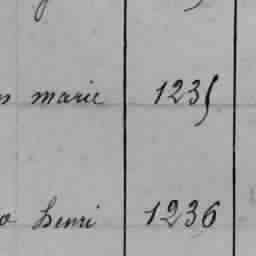 marie 1235
henri 1236